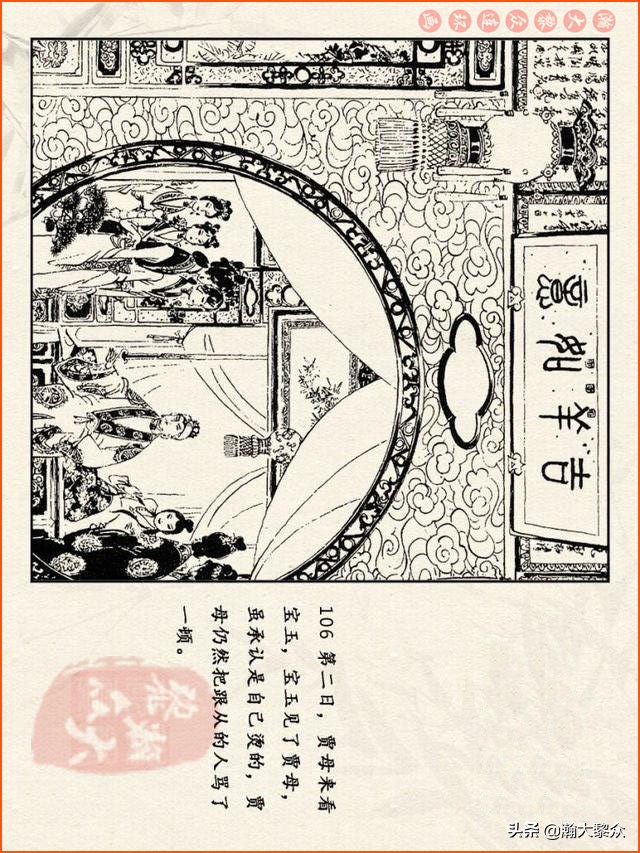 瀚大黎众连环画
吉羊如意
106 第二日，贾母来看
宝玉，宝玉见了贾母，
虽承认是自己烫的，贾
母仍然把跟从的人骂了
一顿。
瀚大黎众
头条 @瀚大黎众